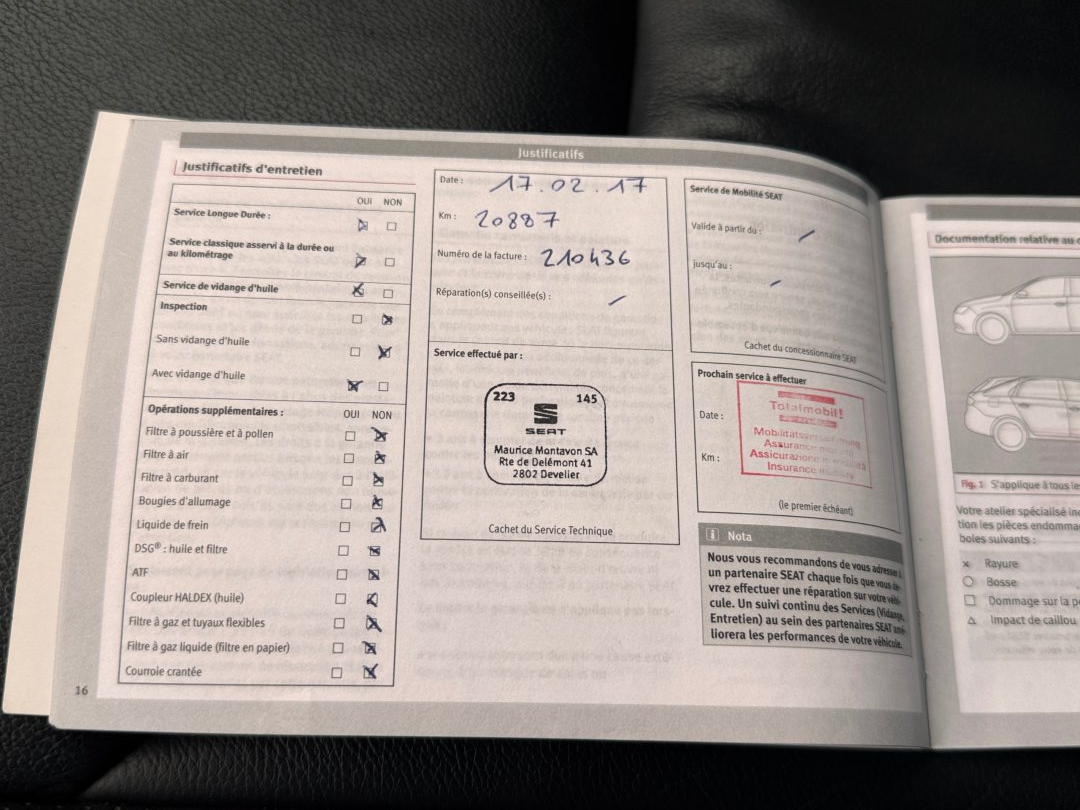 Justificatifs
Justificatifs d'entretien
OUI NON
Service Longue Durée :
Service classique asservi à la durée ou
au kilométrage
Service de vidange d'huile
Inspection
Sans vidange d'huile
Avec vidange d'huile
Opérations supplémentaires : OUI NON
Filtre à poussière et à pollen
Filtre à air
Filtre à carburant
Bougies d'allumage
Liquide de frein
DSG® : huile et filtre
ATF
Coupleur HALDEX (huile)
Filtre à gaz et tuyaux flexibles
Filtre à gaz liquide (filtre en papier)
Courroie crantée
16
Date : 17.02.17
Km : 20887
Numéro de la facture : 210436
Réparation(s) conseillée(s) :
Service effectué par :
223 145
SEAT
Maurice Montavon SA
Rte de Delémont 41
2802 Develier
Cachet du Service Technique
Service de Mobilité SEAT
Valide à partir du :
jusqu'au :
Cachet du concessionnaire SEAT
Prochain service à effectuer
Date :
Km :
Totalmobil!
Assurance
Assicurazione
Insurance
(le premier échéant)
Nota
Nous vous recommandons de vous adresser à
un partenaire SEAT chaque fois que vous de-
vrez effectuer une réparation sur votre véhi-
cule. Un suivi continu des Services (Vidange,
Entretien) au sein des partenaires SEAT amé-
liorera les performances de votre véhicule.
Documentation relative au
Fig. 1 S'applique à tous les
Votre atelier spécialisé
tion les pièces
boles suivants :
× Rayure
○ Bosse
□ Dommage sur la
△ Impact de caillou